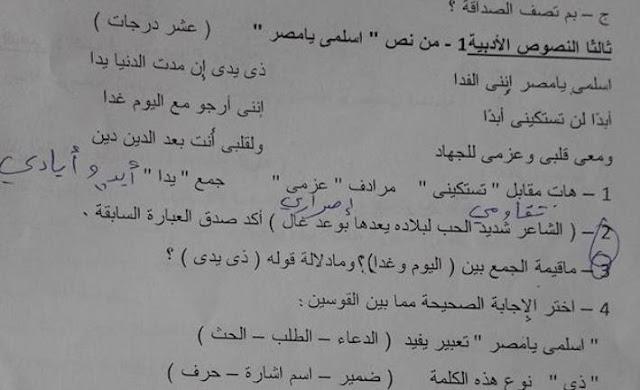 ج – بم تصف الصداقة ؟
ثالثا النصوص الأدبية 1 - من نص " اسلمى يامصر " ( عشر درجات )
اسلمى يامصر إننى الفدا ذى يدى إن مدت الدنيا يدا
أبدًا لن تستكينى أبدًا إننى أرجو مع اليوم غدا
ومعى قلبى وعزمى للجهاد ولقلبى أنت بعد الدين دين
1 – هات مقابل " تستكينى " مرادف " عزمى " جمع " يدا " أيد و أيادي
تقاومي إصراري
2 – ( الشاعر شديد الحب لبلاده يعدها بوعد غال ) أكد صدق العبارة السابقة .
3 – ماقيمة الجمع بين ( اليوم وغدا)؟ ومادلالة قوله ( ذى يدى ) ؟
4 – اختر الإجابة الصحيحة مما بين القوسين :
" اسلمى يامصر " تعبير يفيد ( الدعاء – الطلب – الحث )
" ذي " نوع هذه الكلمة ( ضمير – اسم اشارة – حرف )